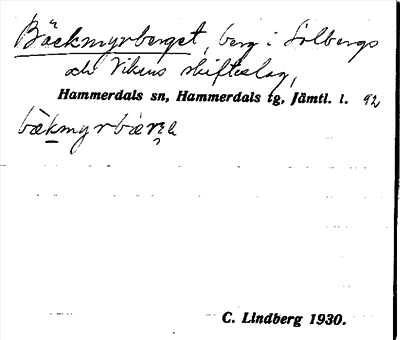 Bäckmyrberget, berg i Solbergs
och Vikens skifteslag,
Hammerdals sn, Hammerdals tg, Jämtl. l. 92
bäkmyrbäre
C. Lindberg 1930.